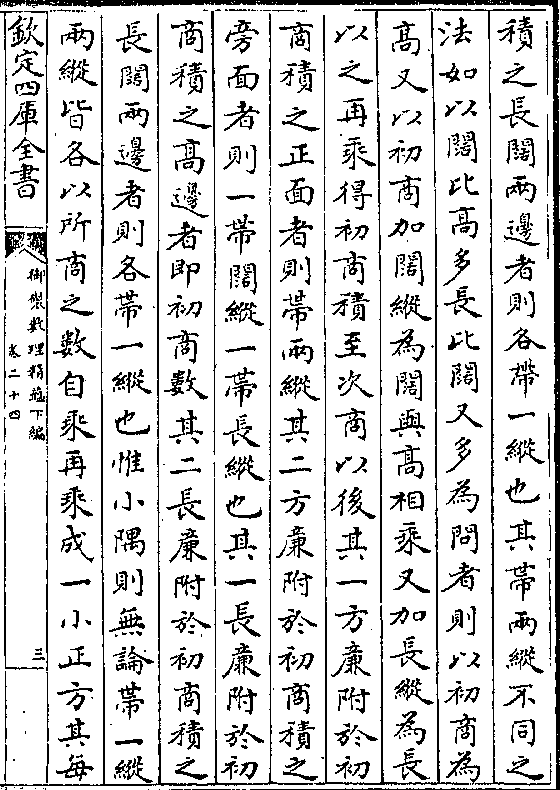 積之長闊兩邊者則各帶一縱也其帶兩縱不同之
法如以闊比高多長比闊又多為問者則以初商為
高又以初商加闊縱為闊與高相乘又加長縱為長
以之再乘得初商積至次商以後其一方廉附於初
商積之正面者則帶兩縱其二方廉附於初商積之
旁面者則一帶闊縱一帶長縱也其一長廉附於初
商積之高邊者即初商數其二長廉附於初商積之
長闊兩邊者則各帶一縱也惟小隅則無論帶一縱
兩縱皆各以所商之數自乘再乘成一小正方其每
欽定四庫全書
御製數理精蘊下編
卷二十四
三